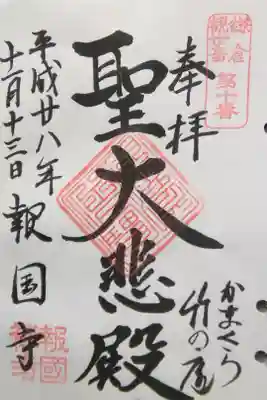 鎌倉
観音
第十番
奉拝
かまくら
竹の庭
聖大悲殿
平成廿八年
十一月十三日 報国寺
報國